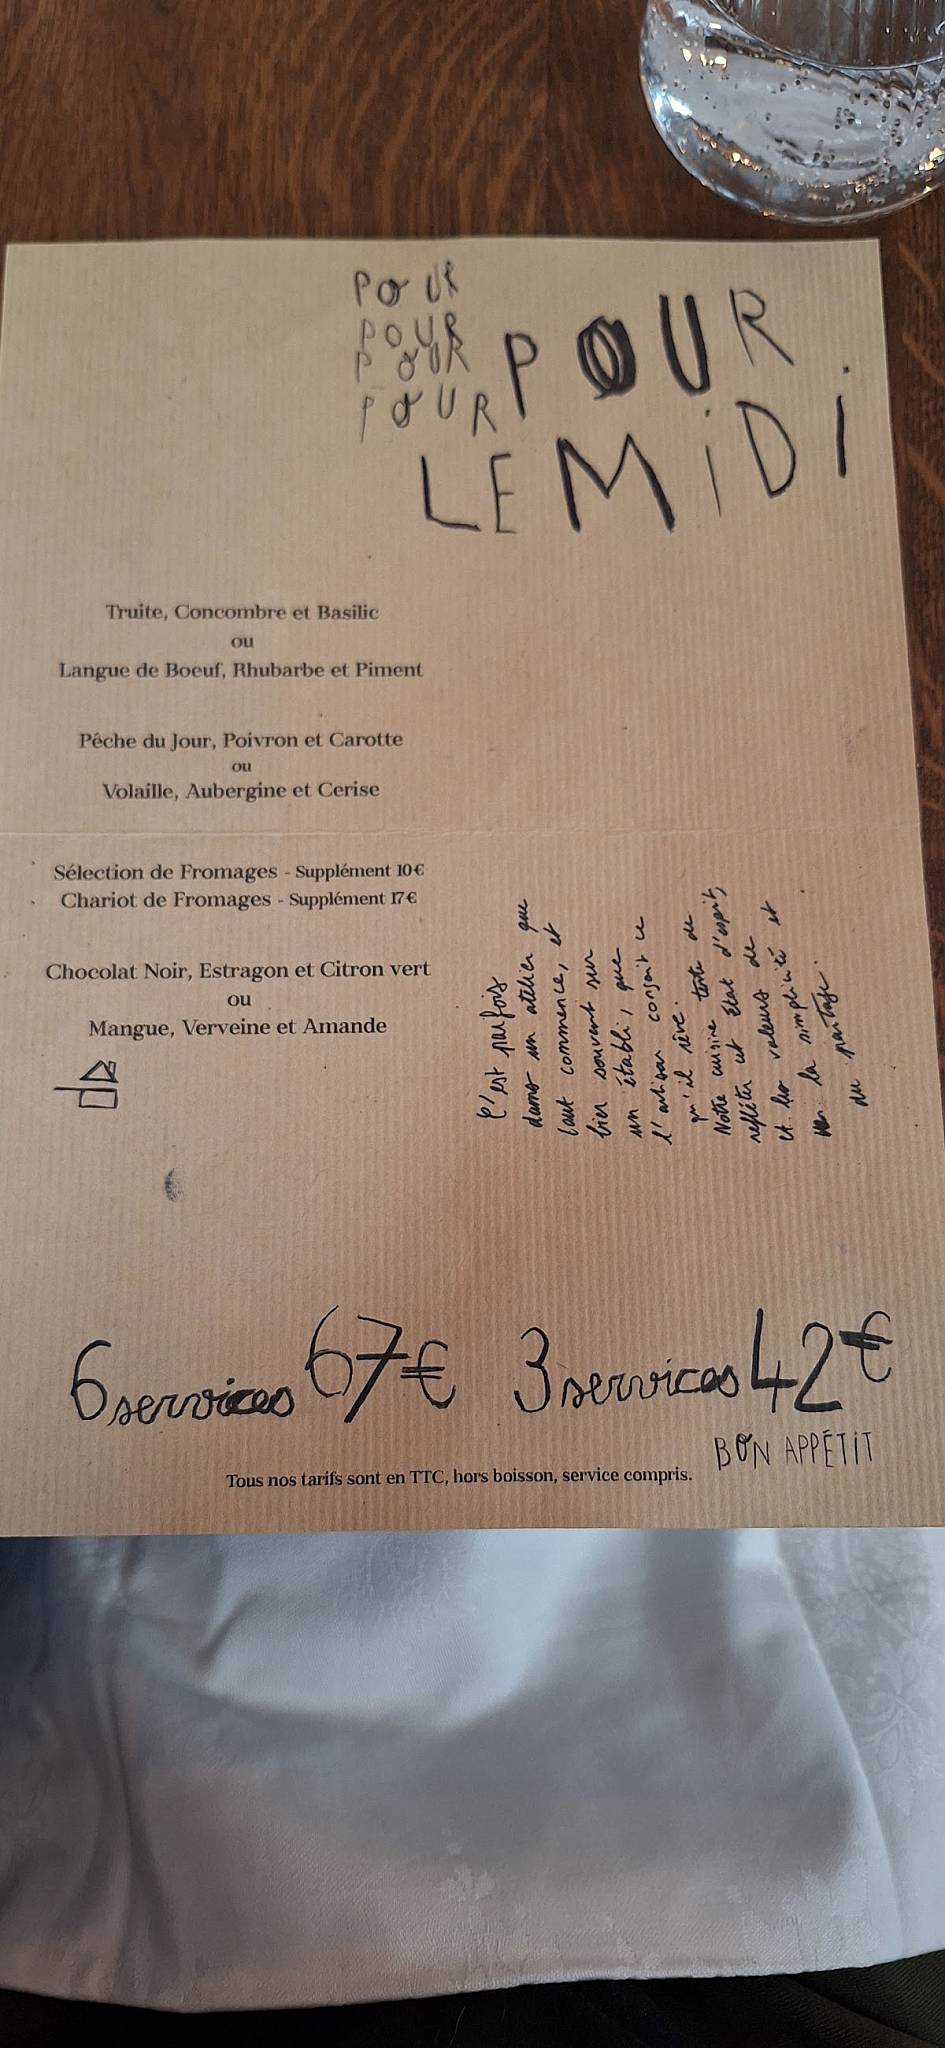 POUR
POUR
POUR
POUR
POUR
LE MiDi
Truite, Concombre et Basilic
ou
Langue de Boeuf, Rhubarbe et Piment
Pêche du Jour, Poivron et Carotte
ou
Volaille, Aubergine et Cerise
Sélection de Fromages - Supplément 10€
Chariot de Fromages - Supplément 17€
Chocolat Noir, Estragon et Citron vert
ou
Mangue, Verveine et Amande
C'est parfois
dans un atelier que
tout commence, et
bien souvent sur
un établi, que
l'artisan conçoit ce
qu'il rêve.
Notre cuisine tente de
refléter cet état d'esprit,
et les valeurs de
la simplicité et
du partage.
6 services 67€
3 services 42€
BON APPÉTiT
Tous nos tarifs sont en TTC, hors boisson, service compris.